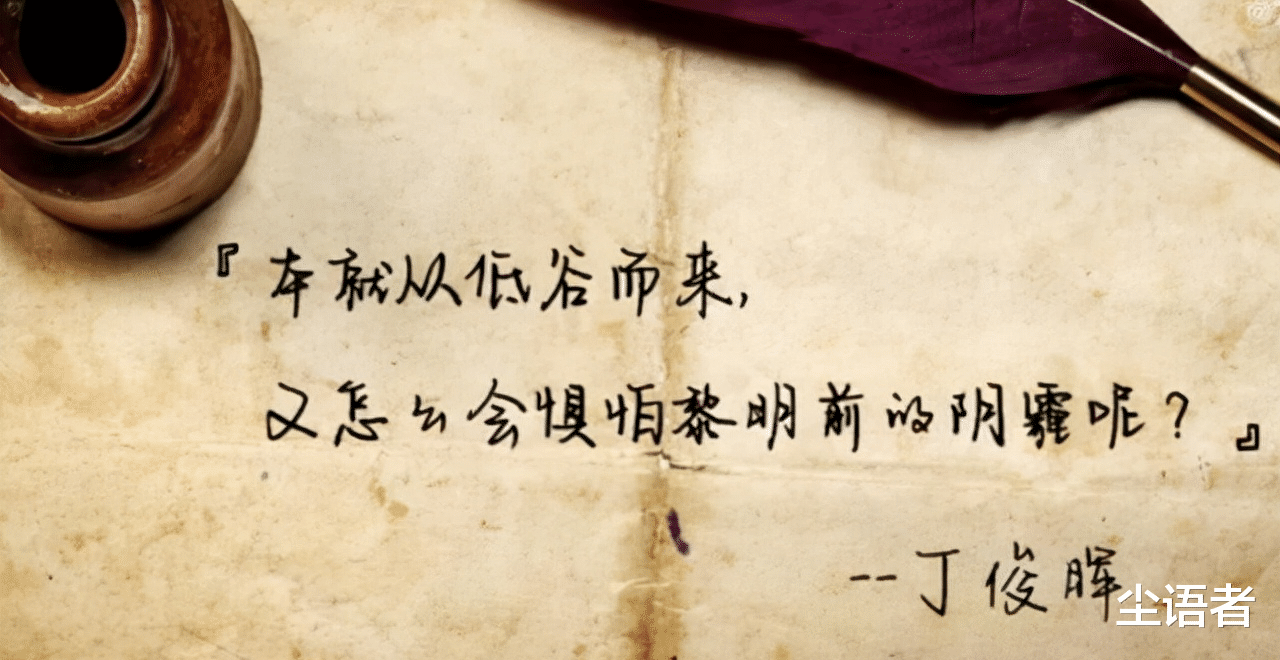 『本就从低谷而来,
又怎么会惧怕黎明前的阴霾呢?』
--丁俊晖
尘语者